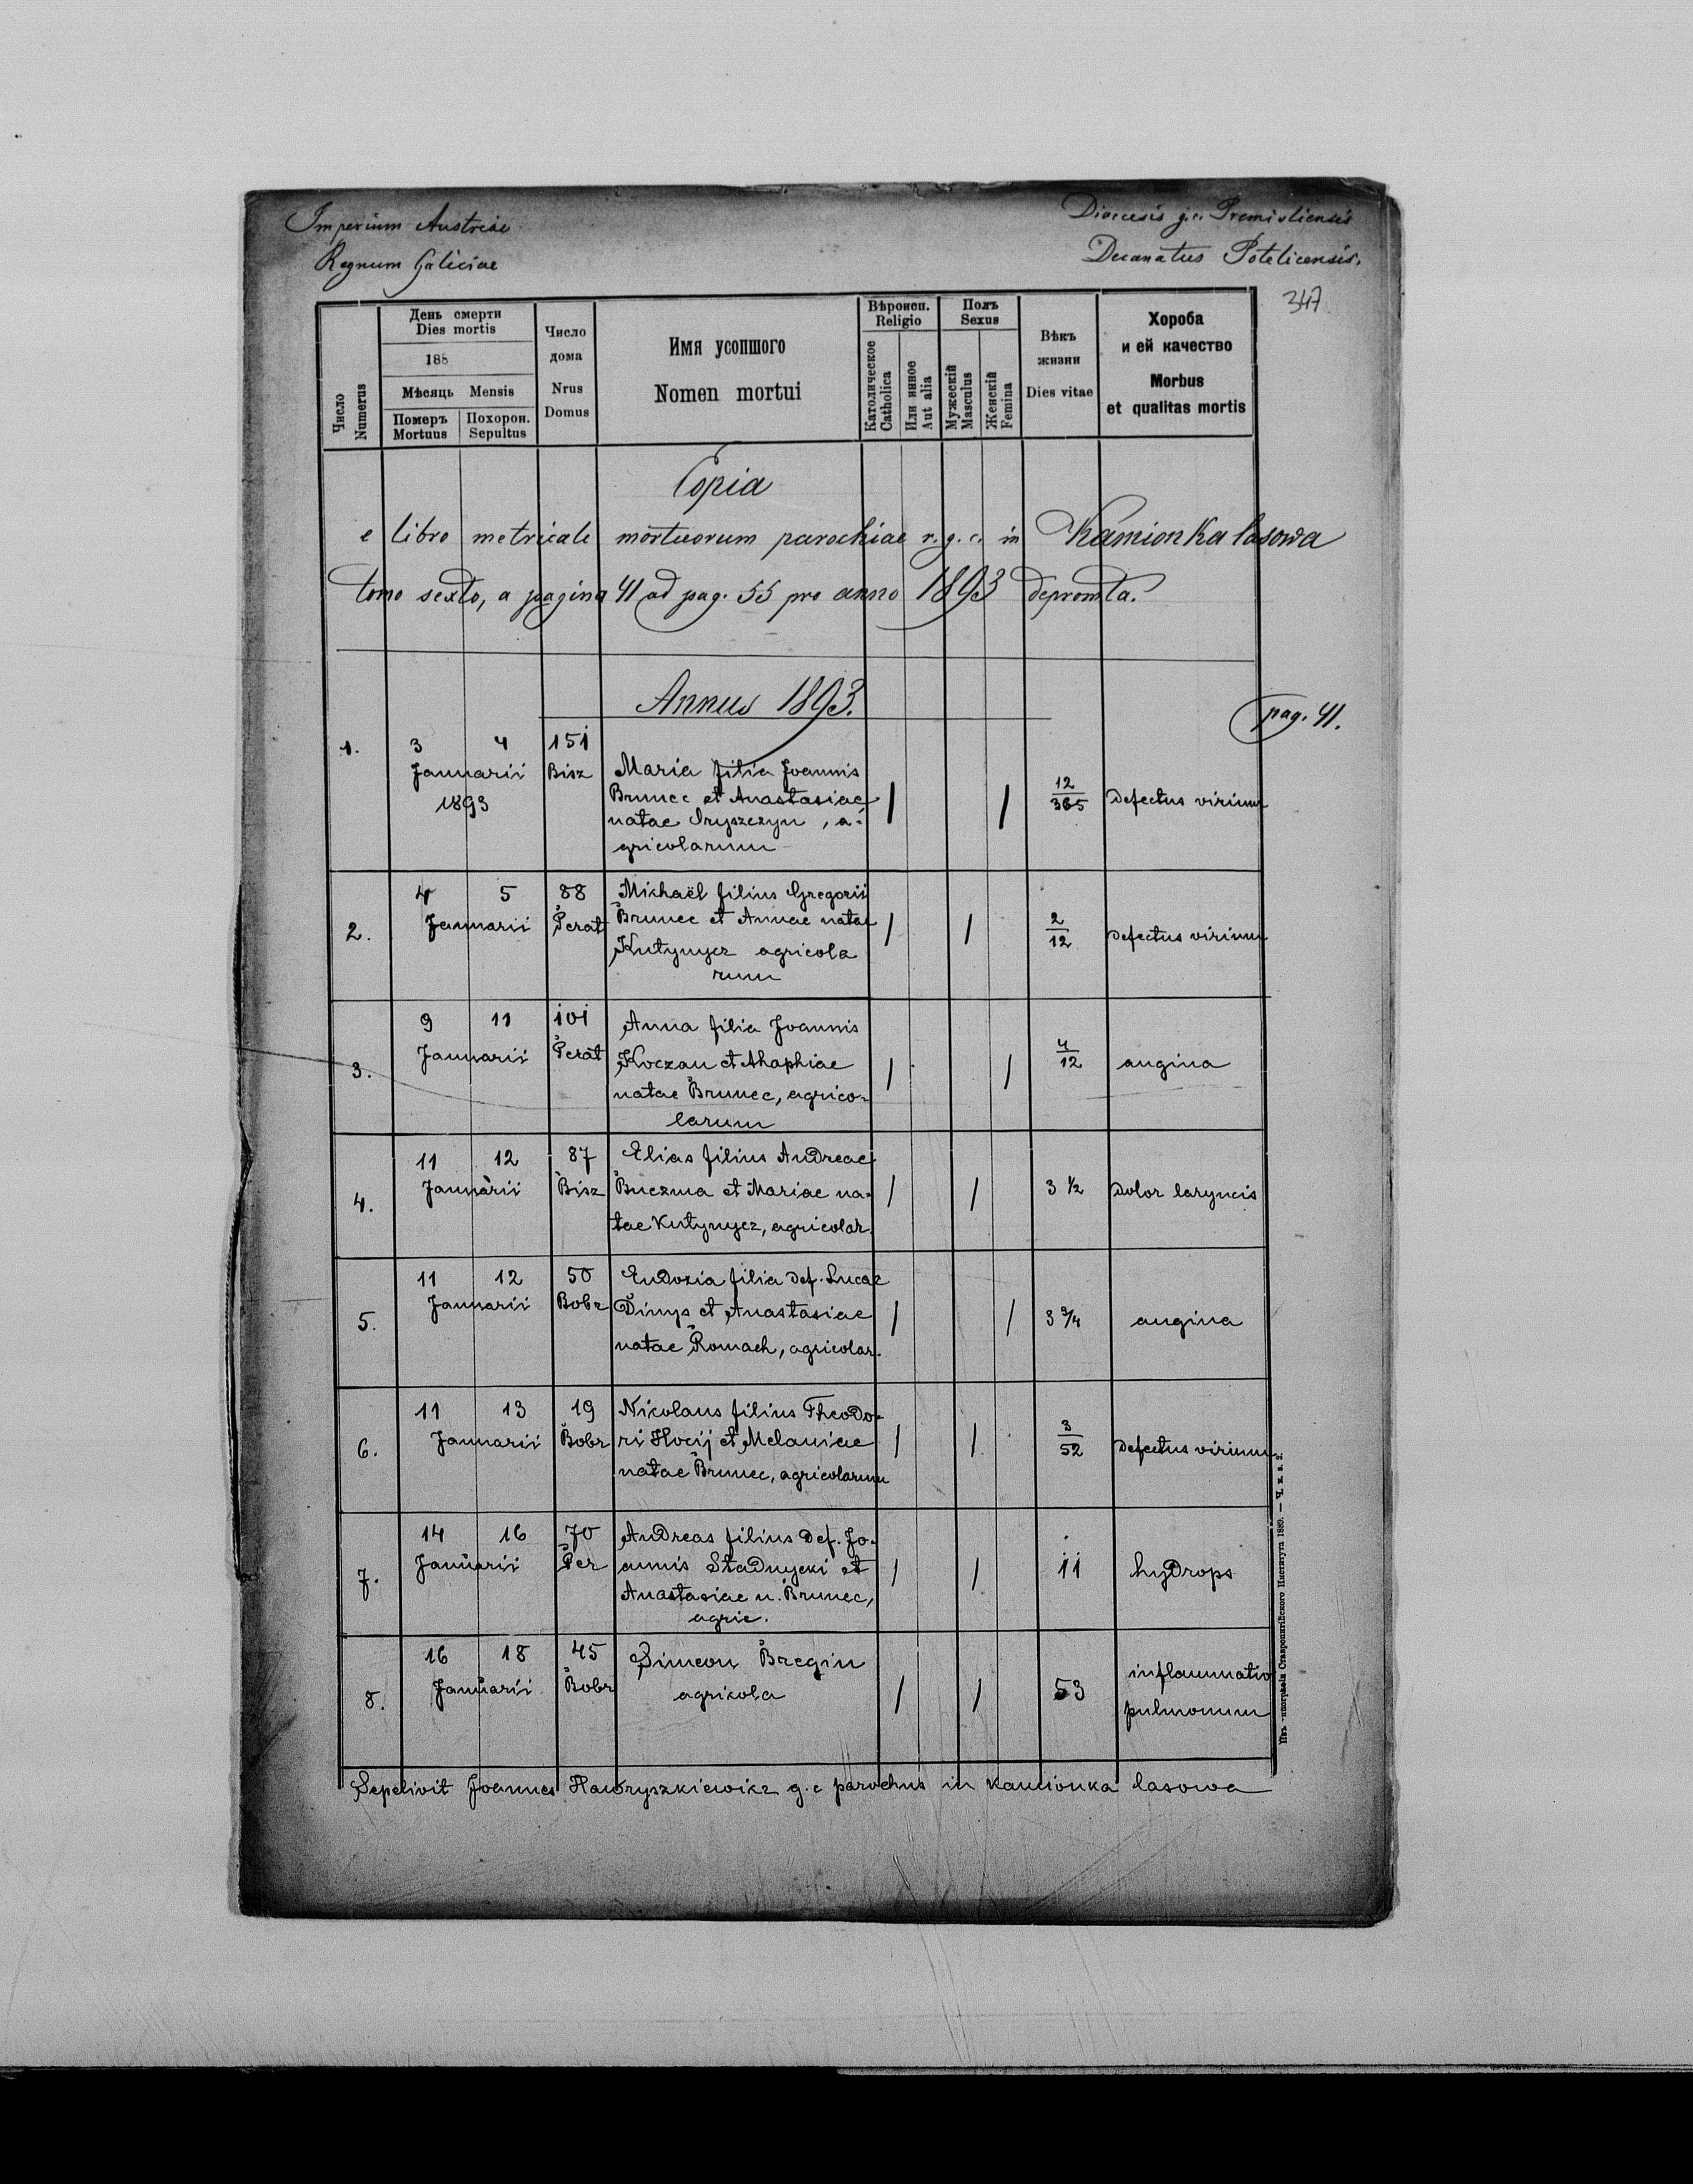 Imperium Austriae
Regnum Galiciae
Dioecesis g.c. Premisliensis
Decanatus Potelicensis.
347
Число
Numerus
День смерти
Dies mortis
188
Мѣсяць Mensis
Померъ
Mortuus
Похорон.
Sepultus
Число
дома
Nrus
Domus
Имя усопшого
Nomen mortui
Вѣроисп.
Religio
Католическое
Catholica
Или инное
Aut alia
Полъ
Sexus
Мужескій
Masculus
Женскій
Femina
Вѣкъ
жизни
Dies vitae
Хороба
и ей качество
Morbus
et qualitas mortis
Copia
e libro metricale mortuorum parochiae r.g.c. in Kamionka lasowa
tomo sexto, a pagina 41 ad pag. 55 pro anno 1893 depromta.
Annus 1893.
pag. 41.
1. 3 4 151
Januarii Bisz
1893
Maria filia Joannis
Brunec et Anastasiae
natae Dryszczyn, a-
gricolarum
12/365 defectus virium
2. 4 5 88
Januarii Perat
Michaël filius Gregorii
Brunec et Annae natae
Kutynycz agricola
rum
2/12 defectus virium
3. 9 11 101
Januarii Perat
Anna filia Joannis
Koczan et Ahaphiae
natae Brunec, agrico-
larum
4/12 angina
4. 11 12 87
Januarii Bisz
Elias filius Andreae
Buczma et Mariae na-
tae Kutynycz, agricolar.
3 1/2 dolor laryncis
5. 11 12 50
Januarii Bobr
Eudoxia filia def. Lucae
Dinys et Anastasiae
natae Romach, agricolar.
3 3/4 angina
6. 11 13 19
Januarii Bobr
Nicolaus filius Theodo-
ri Hocij et Melaniae
natae Brunec, agricolarum
3/52 defectus virium
7. 14 16 70
Januarii Per
Andreas filius def. Jo-
annis Stadnycki et
Anastasiae n. Brunec,
agric.
11 hydrops
8. 16 18 45
Januarii Bobr
Simeon Bregin
agricola
53 inflammatio
pulmonum
Sepelivit Joannes Hawryszkiewicz g.c parochus in Kamionka lasowa
Ставропигійского Института 1889. — Ч. к. а. 2.